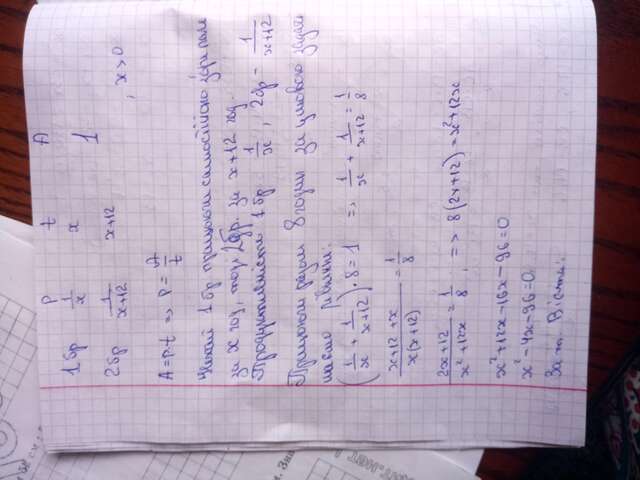 P t A
1 бр 1/x x 1
2 бр 1/x+12 x+12 , x>0
A=p·t => P=A/t
Нехай 1 бр працюючи самостійно зоре поле
за x год, тоді 2 бр. за x+12 год.
Продуктивність 1 бр - 1/x, 2 бр - 1/x+12
Працюючи разом 8 годин за умовою задачі
маємо рівняння:
(1/x + 1/x+12)·8=1 => 1/x + 1/x+12 = 1/8
x+12+x/x(x+12) = 1/8
2x+12/x²+12x = 1/8 ; => 8(2x+12)=x²+12x
x²+12x-16x-96=0
x²-4x-96=0
За т. Вієта: